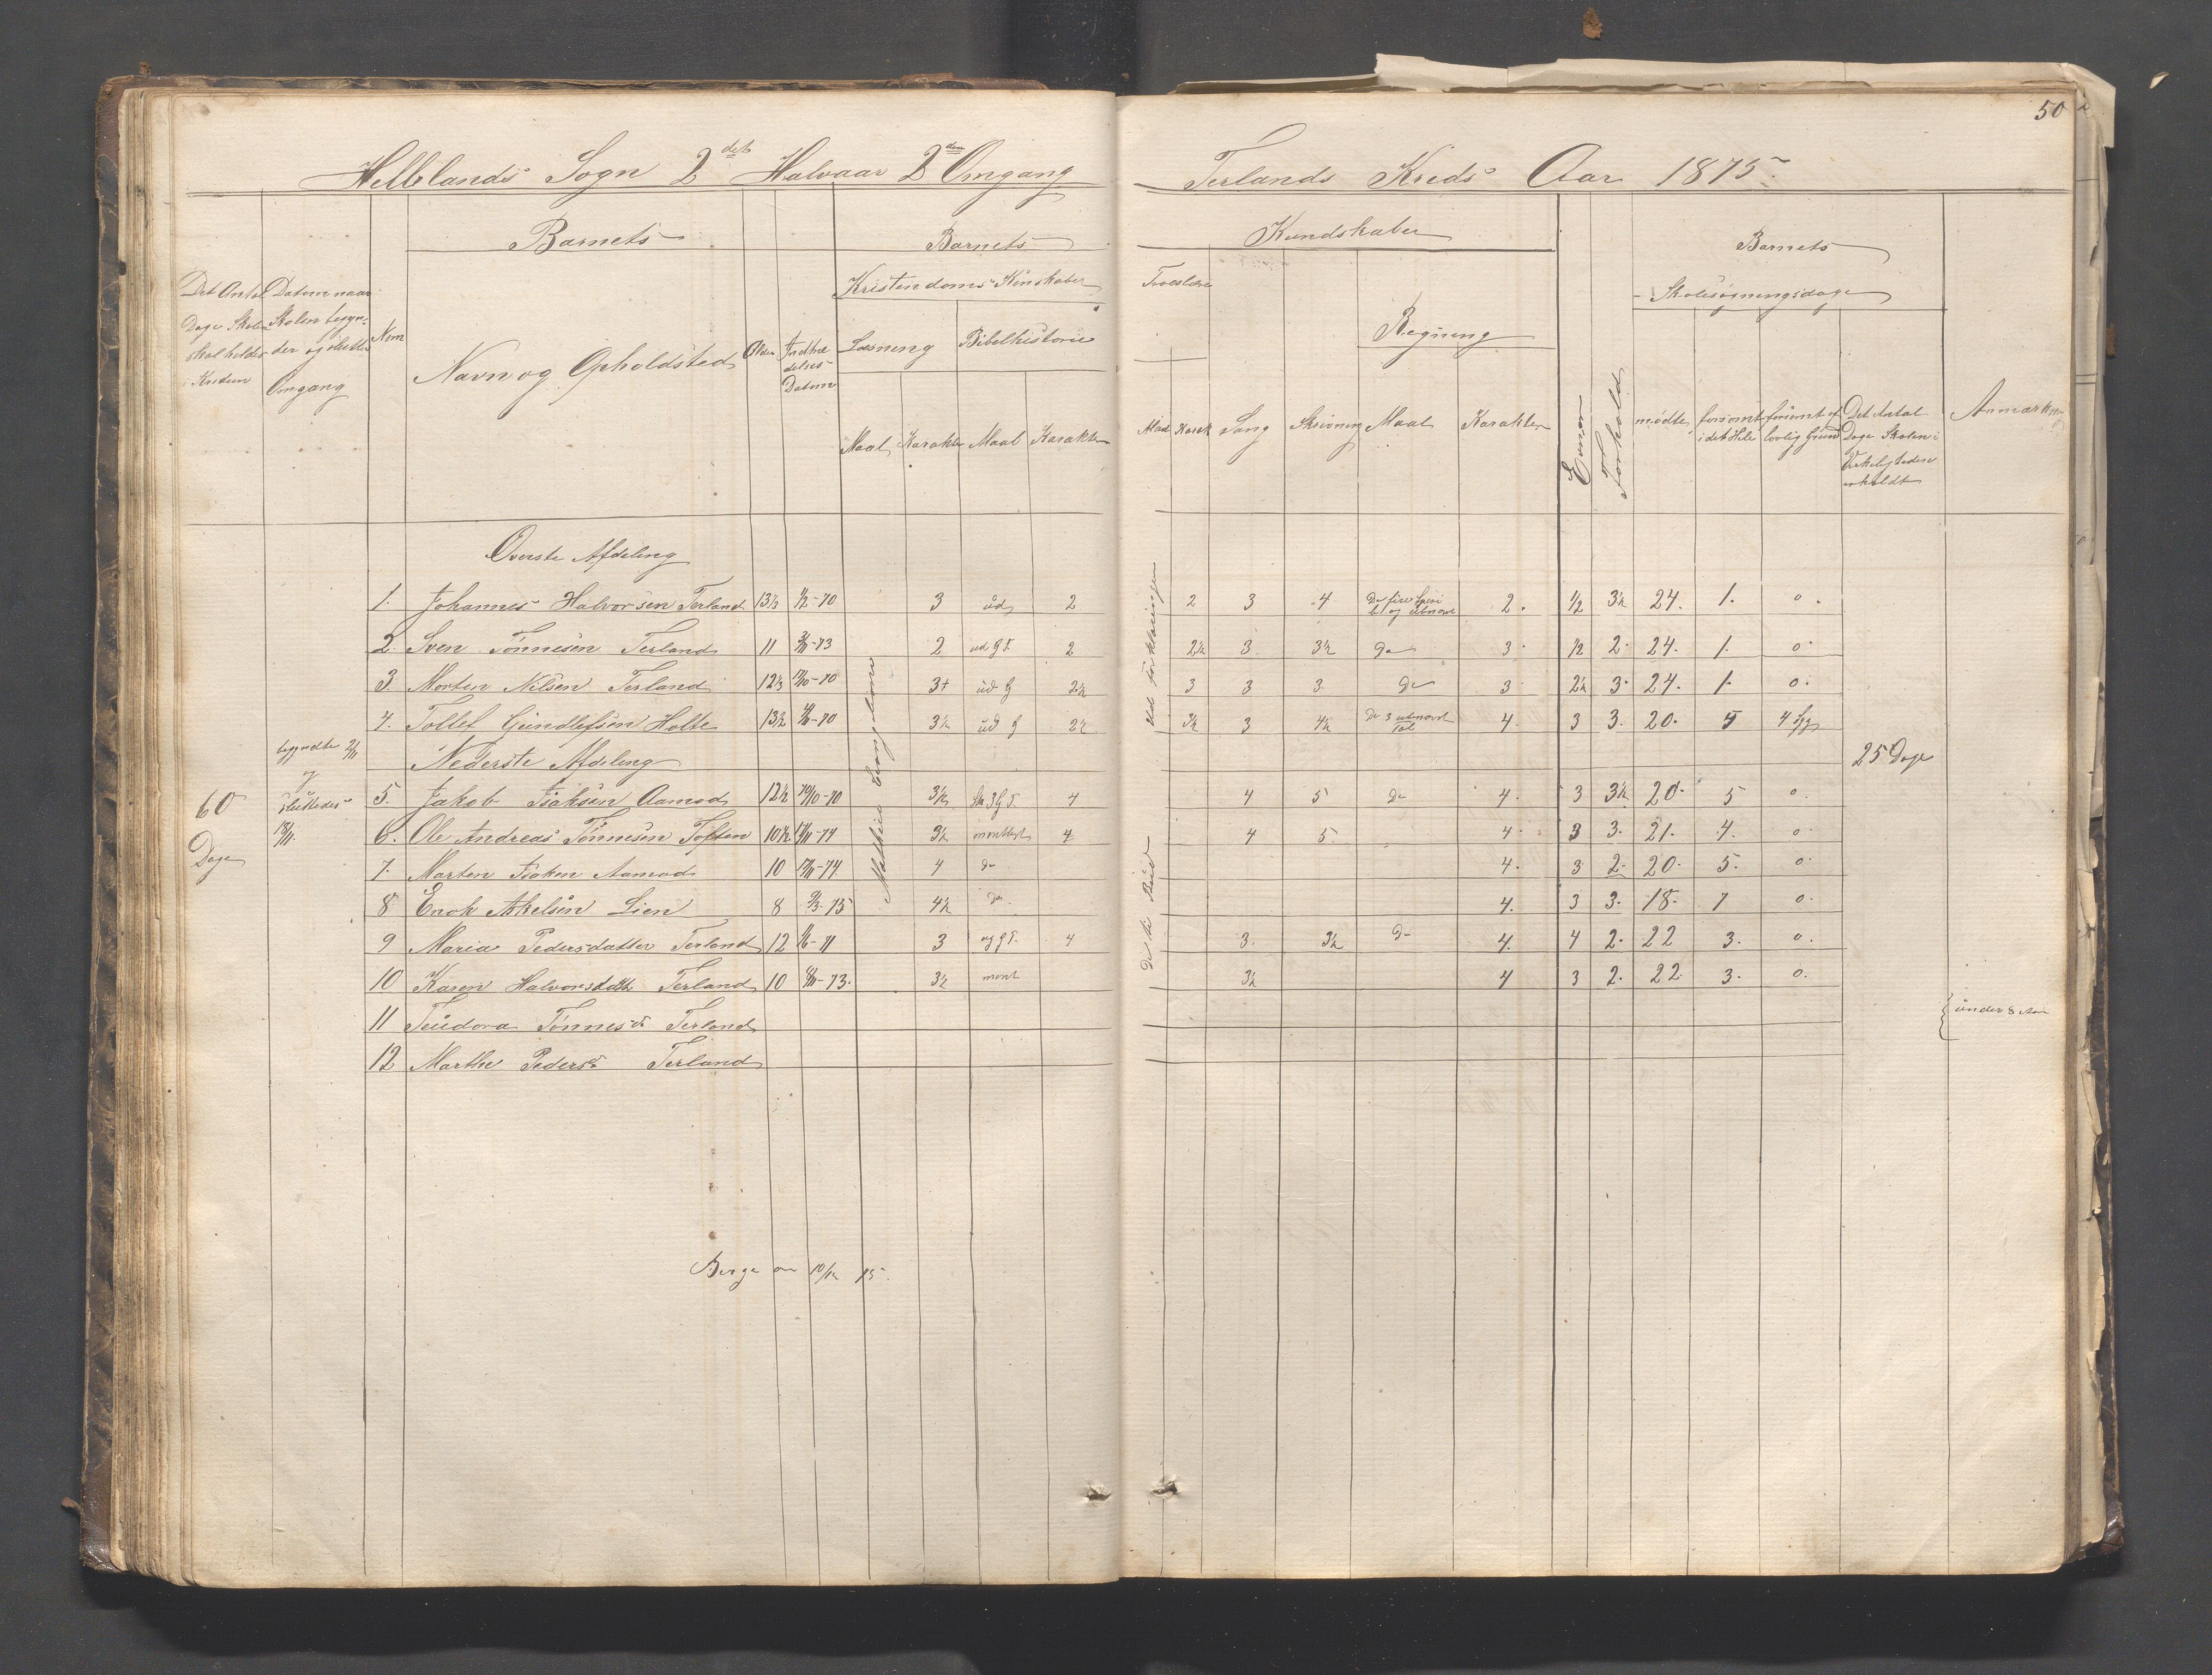 50
Hellelands Sogn 2det Halvaar 2den Omgang
Terlands Kreds Aar 1875.
Barnets
Barnets
Kundskaber
Barnets
Kristendoms Kunskaber
Troeslære
Skolesøgningsdage
Det Antal Dage Skolen skal holdes i Kredsen
Datum naar Skolen begynder og slutter Omgang
Nom
Navn og Opholdsted
Alder
Indtrædelses Datum
Læsning
Bibelhistorie
Regning
Maal Karakter Maal Karakter
Maal Karak Sang Skrivning Maal Karakter
Evner
Forhold
mødte
forsømt i det Hele
forsømt af lovlig Grund
Det Antal Dage Skolen i Virkeligheden er holdt
Anmærkn
Øverste Afdeling
1. Johannes Halvorsen Terland 13⅓ 3 ud 2 2 3 4 2. 1/2 3½ 24. 1. 0.
2. Sven Tønnesen Terland 11 2 ud G T. 2 2½ 3. 3½ Do 3. 1/2 2. 24. 1. 0.
3. Morten Nilsen Terland 12⅓ 3+ ud G 2½ 3 3 3. Do 3 2½ 3. 24. 1. 0.
4. Tollef Gundlefsen Holte 13½ 3½ ud G 2½ 3½ 3 4½ 4. 3 3. 20. 5 4 Syg
Nederste Afdeling
begyndte 2/11
og
sluttedes
60
Dage
25 Dage
5. Jakob Isaksen Aamod 12½ 3½ 4 4 5 Do 4. 3 3½ 20. 5 0.
6. Ole Andreas Tønnesen Toften 10½ 3½ montligt 4 4 5. 4. 3 3. 21. 4. 0.
7. Marten Isaken Aamod 10 4 Do 4. 3 2. 20. 5. 0.
8 Enok Akselsen Lien 8 4½ Do. 4. 3 3. 18. 7 0.
9 Maria Pedersdatter Terland 12 3 og G T. 4 3. 3½ Do 4. 4 2. 22 3. 0.
10 Karen Halvorsdtr Terland 10 3½ mont 3½ 4 3 2. 22. 3. 0.
11 Teudora Tønnesd. Terland
12 Marthe Pedersd. Terland
under 8 Aar
Berge 10/12 75.